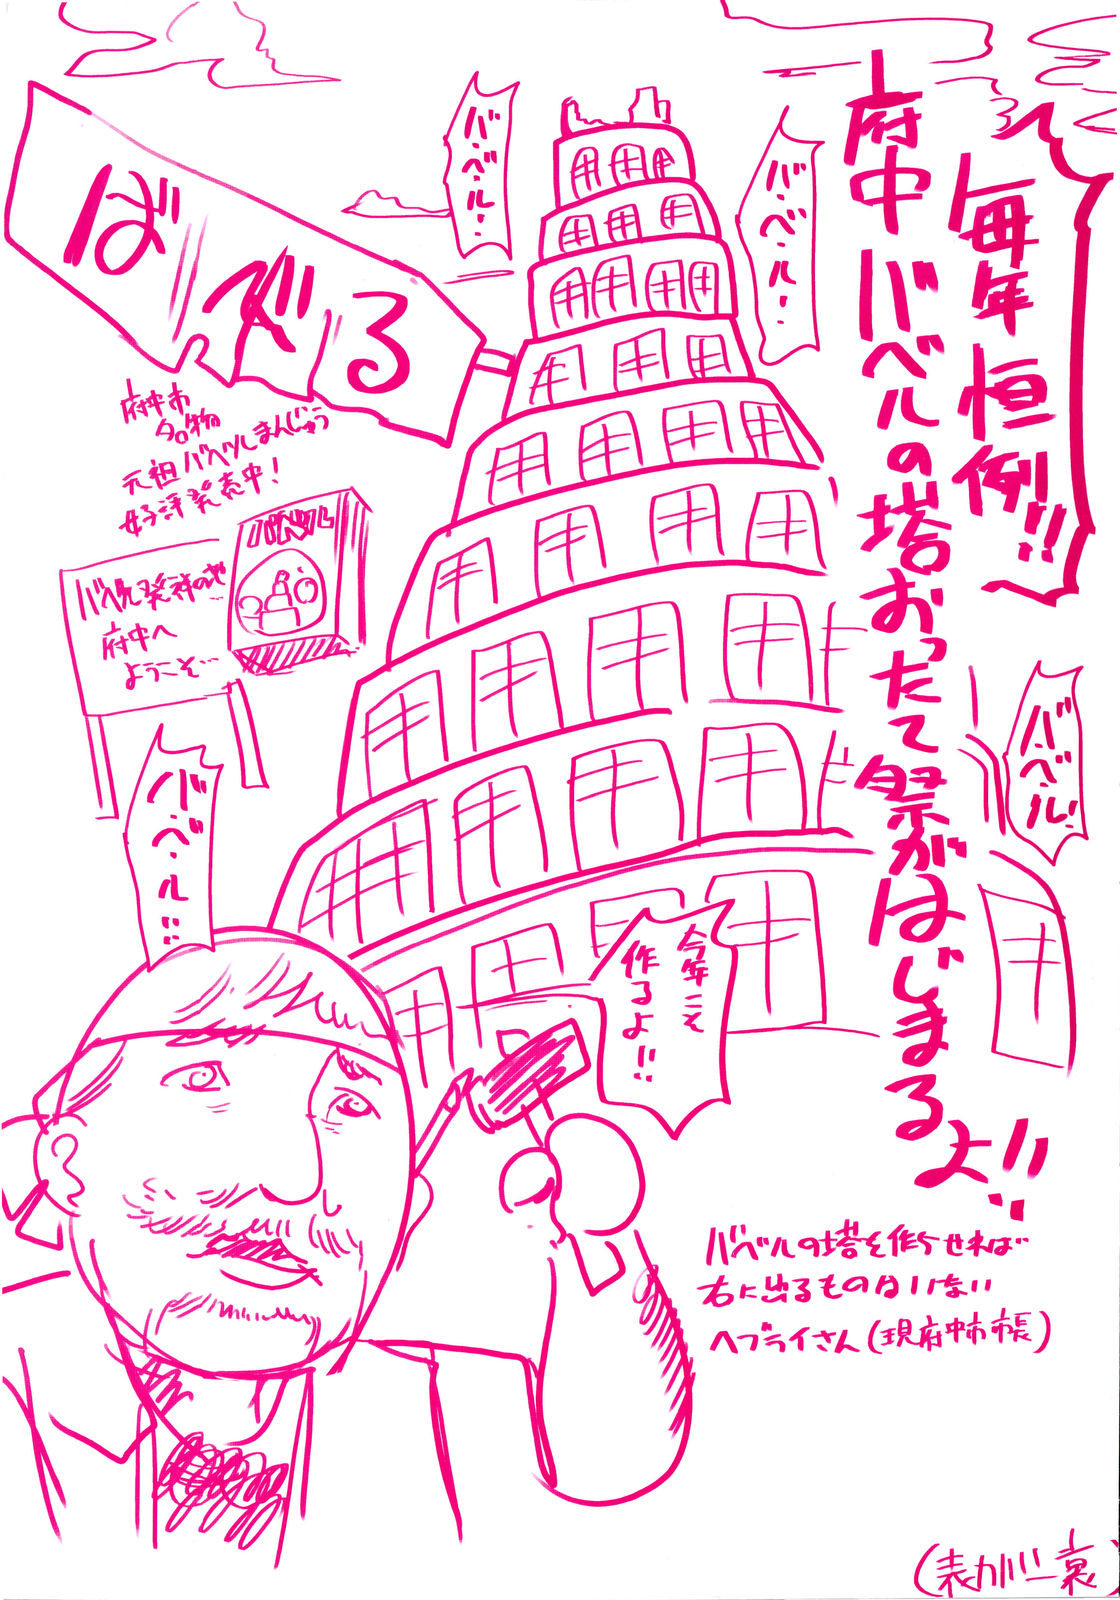 毎年恒例!!
府中バベルの塔おったて祭がはじまるよ!!
バ・ベ・ル・・
バ・ベ・ル・・
ばべる
府中市
名物
元祖バベルまんじゅう
好評発売中!
バベル
バベル発祥の地
府中へ
ようこそ…
バ・ベ・ル!
バ・ベ・ル!!
今年こそ
作るよ!!
バベルの塔を作らせれば
右に出るものはいない
ヘブライさん(現府中市長)
(表カバー裏)